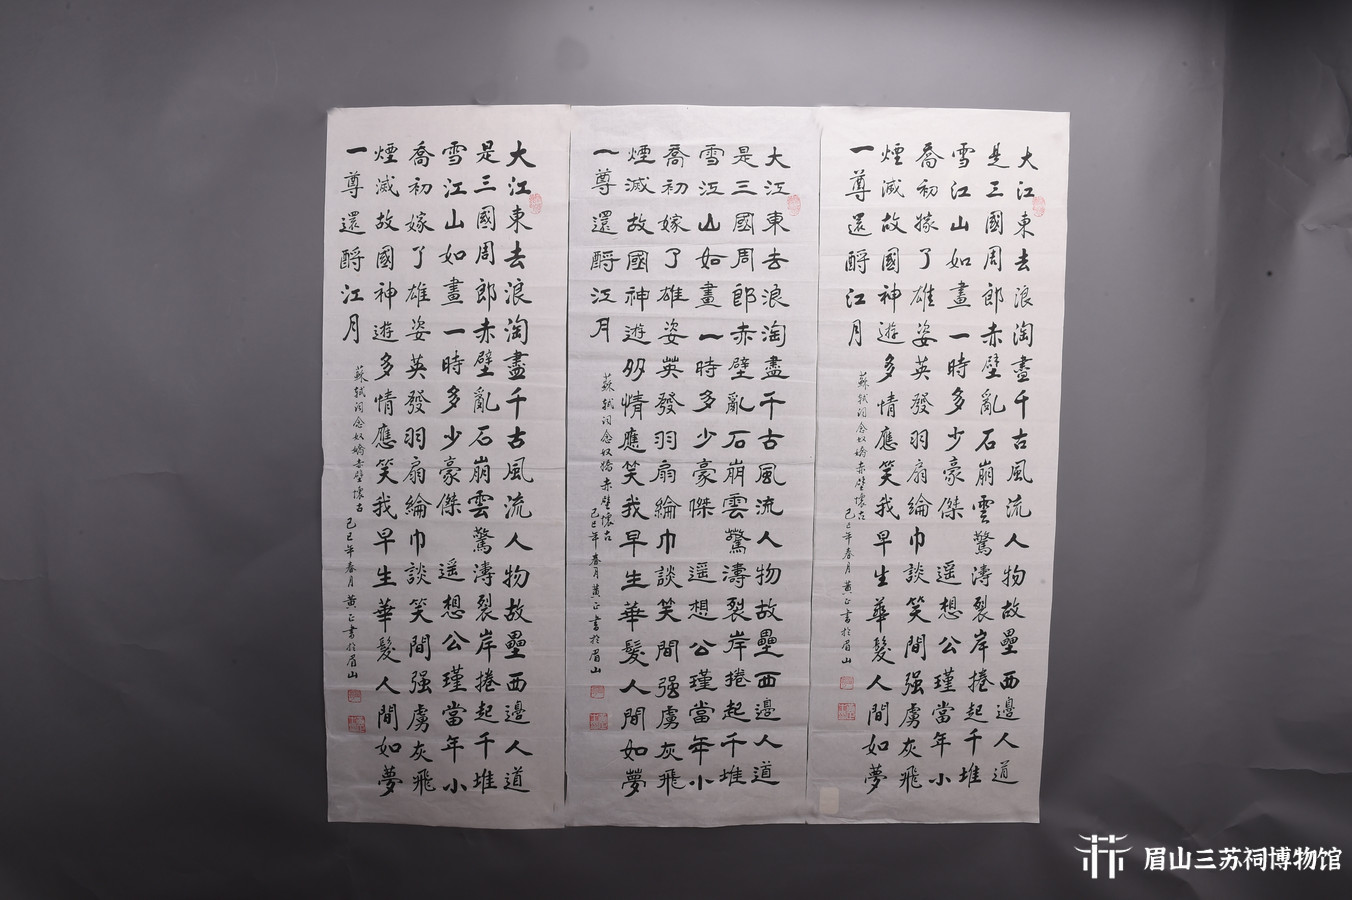 大江東去浪淘盡千古風流人物故壘西邊人道
是三國周郎赤壁亂石崩雲驚濤裂岸捲起千堆
雪江山如畫一時多少豪傑 遥想公瑾當年小
喬初嫁了雄姿英發羽扇綸巾談笑間强虜灰飛
煙滅故國神遊多情應笑我早生華髮人間如夢
一尊還酹江月
蘇軾詞念奴嬌赤壁懷古
己巳年春月黄正書於眉山
大江東去浪淘盡千古風流人物故壘西邊人道
是三國周郎赤壁亂石崩雲驚濤裂岸捲起千堆
雪江山如畫一時多少豪傑 遥想公瑾當年小
喬初嫁了雄姿英發羽扇綸巾談笑間强虜灰飛
煙滅故國神遊多情應笑我早生華髮人間如夢
一尊還酹江月
蘇軾詞念奴嬌赤壁懷古
己巳年春月黄正書於眉山
大江東去浪淘盡千古風流人物故壘西邊人道
是三國周郎赤壁亂石崩雲驚濤裂岸捲起千堆
雪江山如畫一時多少豪傑 遥想公瑾當年小
喬初嫁了雄姿英發羽扇綸巾談笑間强虜灰飛
煙滅故國神遊多情應笑我早生華髮人間如夢
一尊還酹江月
蘇軾詞念奴嬌赤壁懷古 己巳年春月黄正書於眉山
眉山三苏祠博物馆